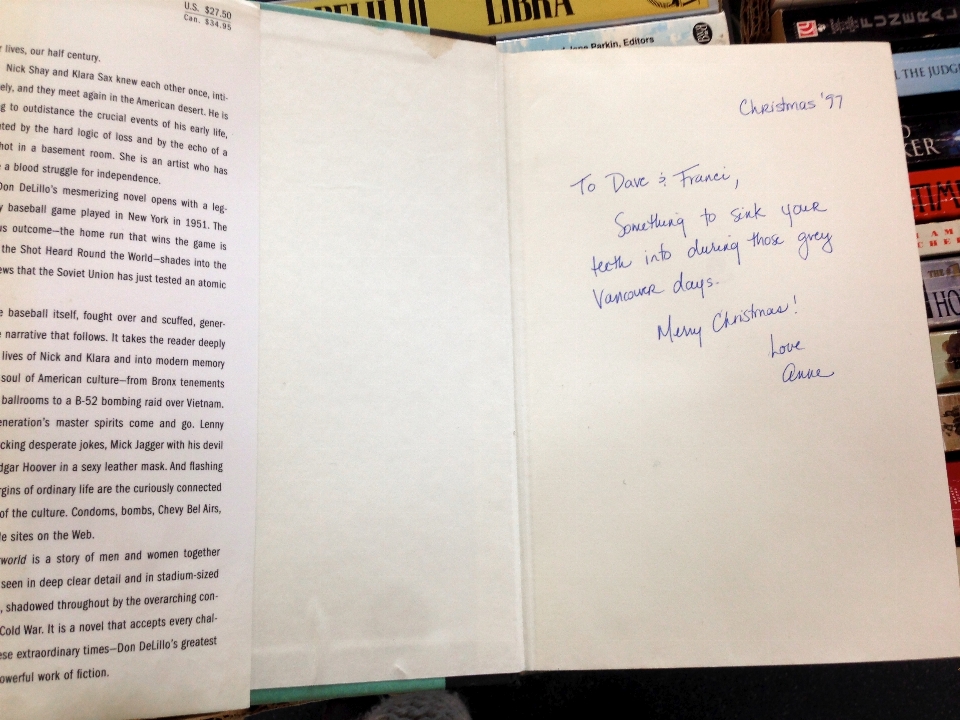 U.S. $27.50
Can. $34.95
lives, our half century.
Nick Shay and Klara Sax knew each other once, inti-
ely, and they meet again in the American desert. He is
g to outdistance the crucial events of his early life,
ted by the hard logic of loss and by the echo of a
hot in a basement room. She is an artist who has
a blood struggle for independence.
Don DeLillo's mesmerizing novel opens with a leg-
y baseball game played in New York in 1951. The
us outcome—the home run that wins the game is
the Shot Heard Round the World—shades into the
ews that the Soviet Union has just tested an atomic
e baseball itself, fought over and scuffed, gener-
e narrative that follows. It takes the reader deeply
lives of Nick and Klara and into modern memory
soul of American culture—from Bronx tenements
ballrooms to a B-52 bombing raid over Vietnam.
eneration's master spirits come and go. Lenny
cking desperate jokes, Mick Jagger with his devil
dgar Hoover in a sexy leather mask. And flashing
rgins of ordinary life are the curiously connected
of the culture. Condoms, bombs, Chevy Bel Airs,
le sites on the Web.
world is a story of men and women together
seen in deep clear detail and in stadium-sized
, shadowed throughout by the overarching con-
Cold War. It is a novel that accepts every chal-
ese extraordinary times—Don DeLillo's greatest
owerful work of fiction.
DELILLO LIBRA
Parkin, Editors
Christmas '97
To Dave & Franci,
Something to sink your
teeth into during those grey
Vancouver days.
Merry Christmas!
Love
Anne
FUNERAL
THE JUDG
KER
TIM
AM
HO